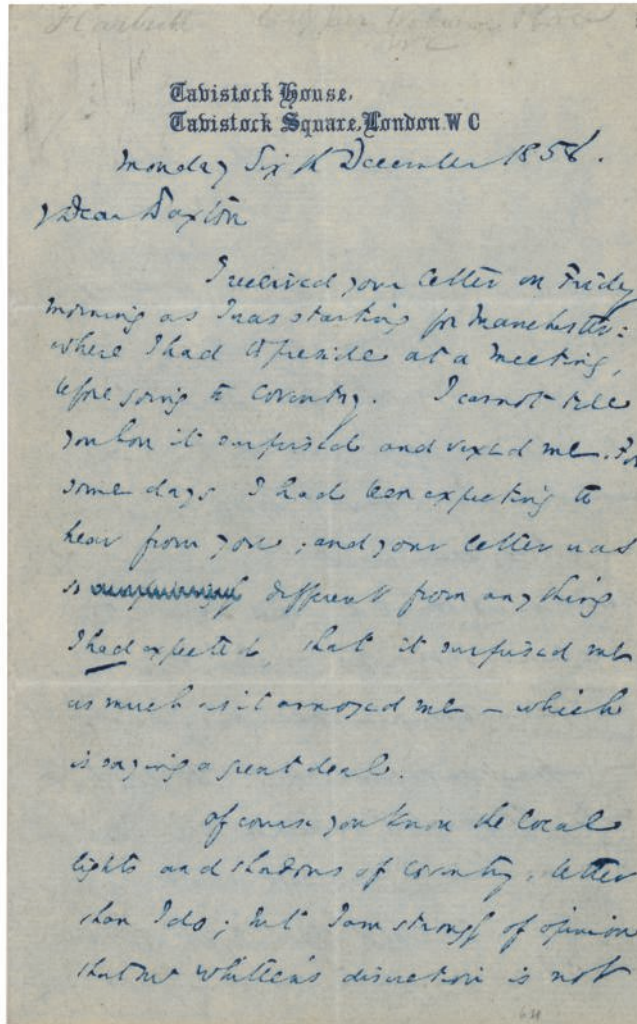 Tavistock House,
Tavistock Square, London. W C
Monday Sixth December 1858.
My Dear Paxton
I received your letter on Friday
morning as I was starting for Manchester:
where I had to preside at a meeting,
before going to Coventry. I cannot tell
you how it surprised and vexed me. For
some days I had been expecting to
hear from you; and your letter was
so different from anything
I had expected, that it surprised me
as much as it annoyed me – which
is saying a great deal.
Of course you know the local
lights and shadows of Coventry, better
than I do; but I am strongly of opinion
that Mr Whittem's discretion is not